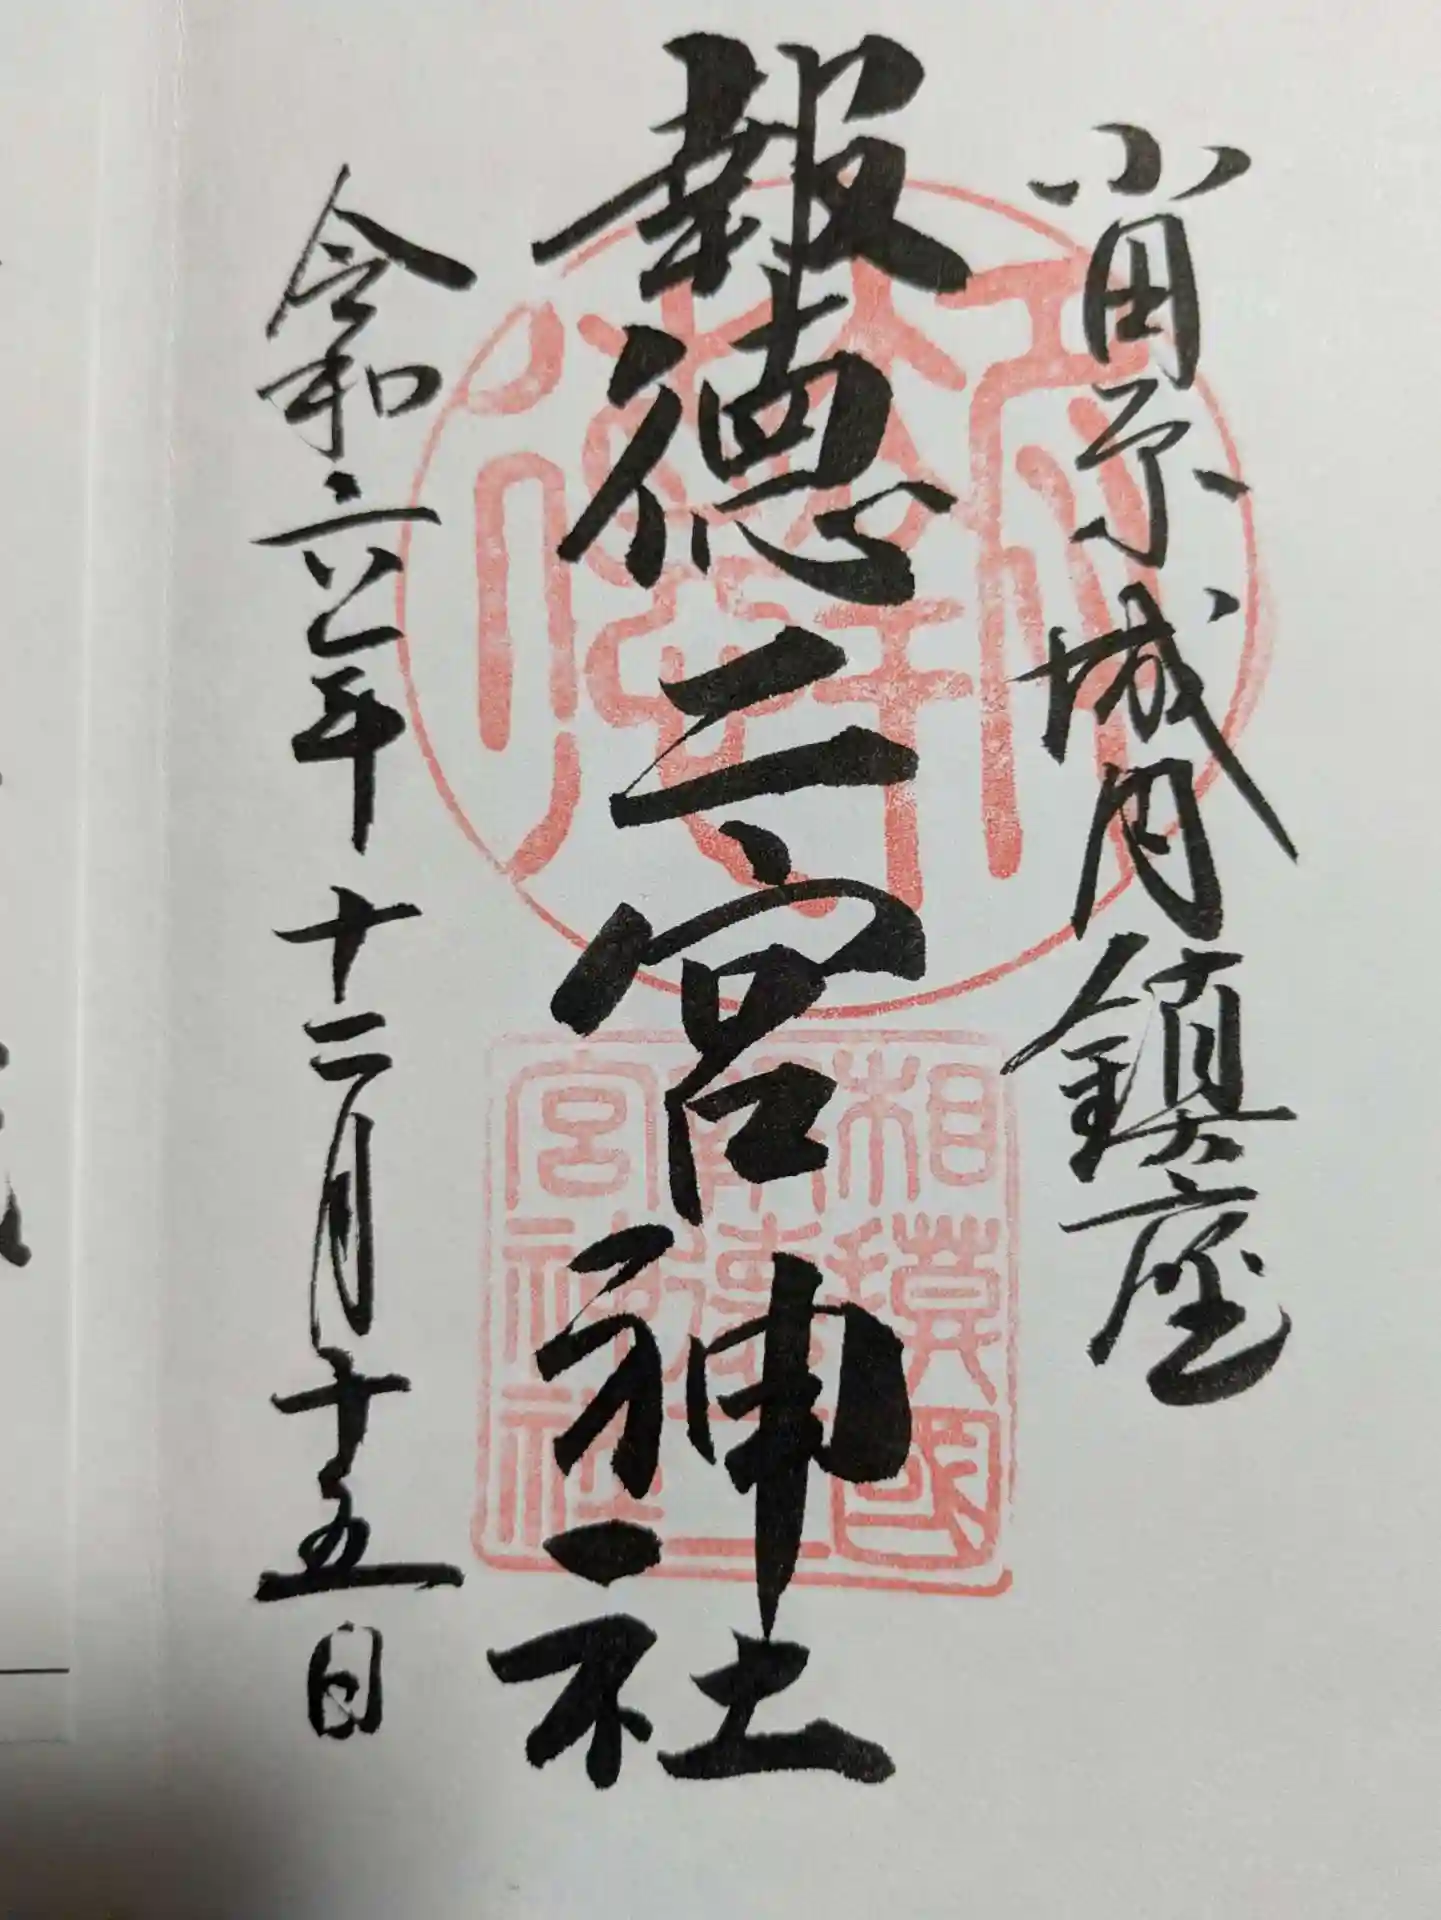 小田原城内鎮座
報徳二宮神社
令和六年十二月十五日
相模國
報徳二
宮神社